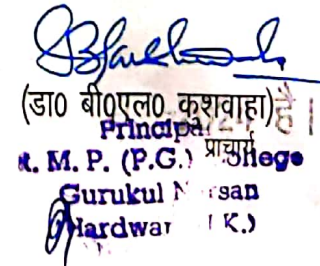 (डा० बी०एल० कुशवाहा) है।
Principal
प्राचार्य
R. M. P. (P.G.) College
Gurukul Narsan
Hardwar (U.K.)